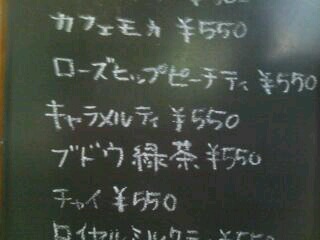 カフェモカ ¥550
ローズヒップピーチティ ¥550
キャラメルティ ¥550
ブドウ緑茶 ¥550
チャイ ¥550
ロイヤルミルクティ ¥550